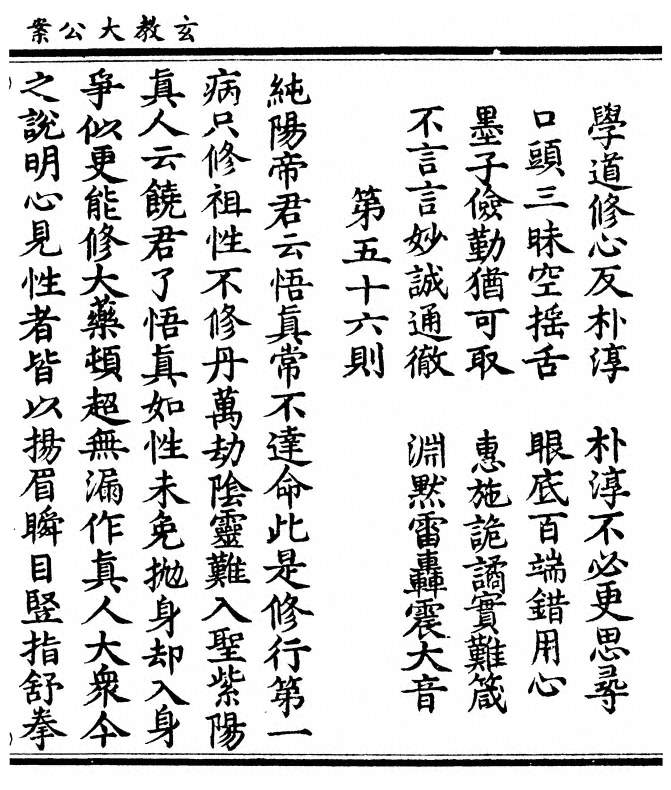 玄教大公案
學道修心反朴淳　朴淳不必更思尋
口頭三昧空揺舌　眼底百端錯用心
墨子儉勤猶可取　惠施詭譎實難箴
不言言妙誠通徹　淵默雷轟震大音
第五十六則
純陽帝君云悟眞常不達命此是修行第一
病只修祖性不修丹萬劫陰靈難入聖紫陽
眞人云饒君了悟眞如性未免抛身却入身
爭似更能修大藥頓超無漏作眞人大衆今
之說明心見性者皆以揚眉瞬目竪指舒拳